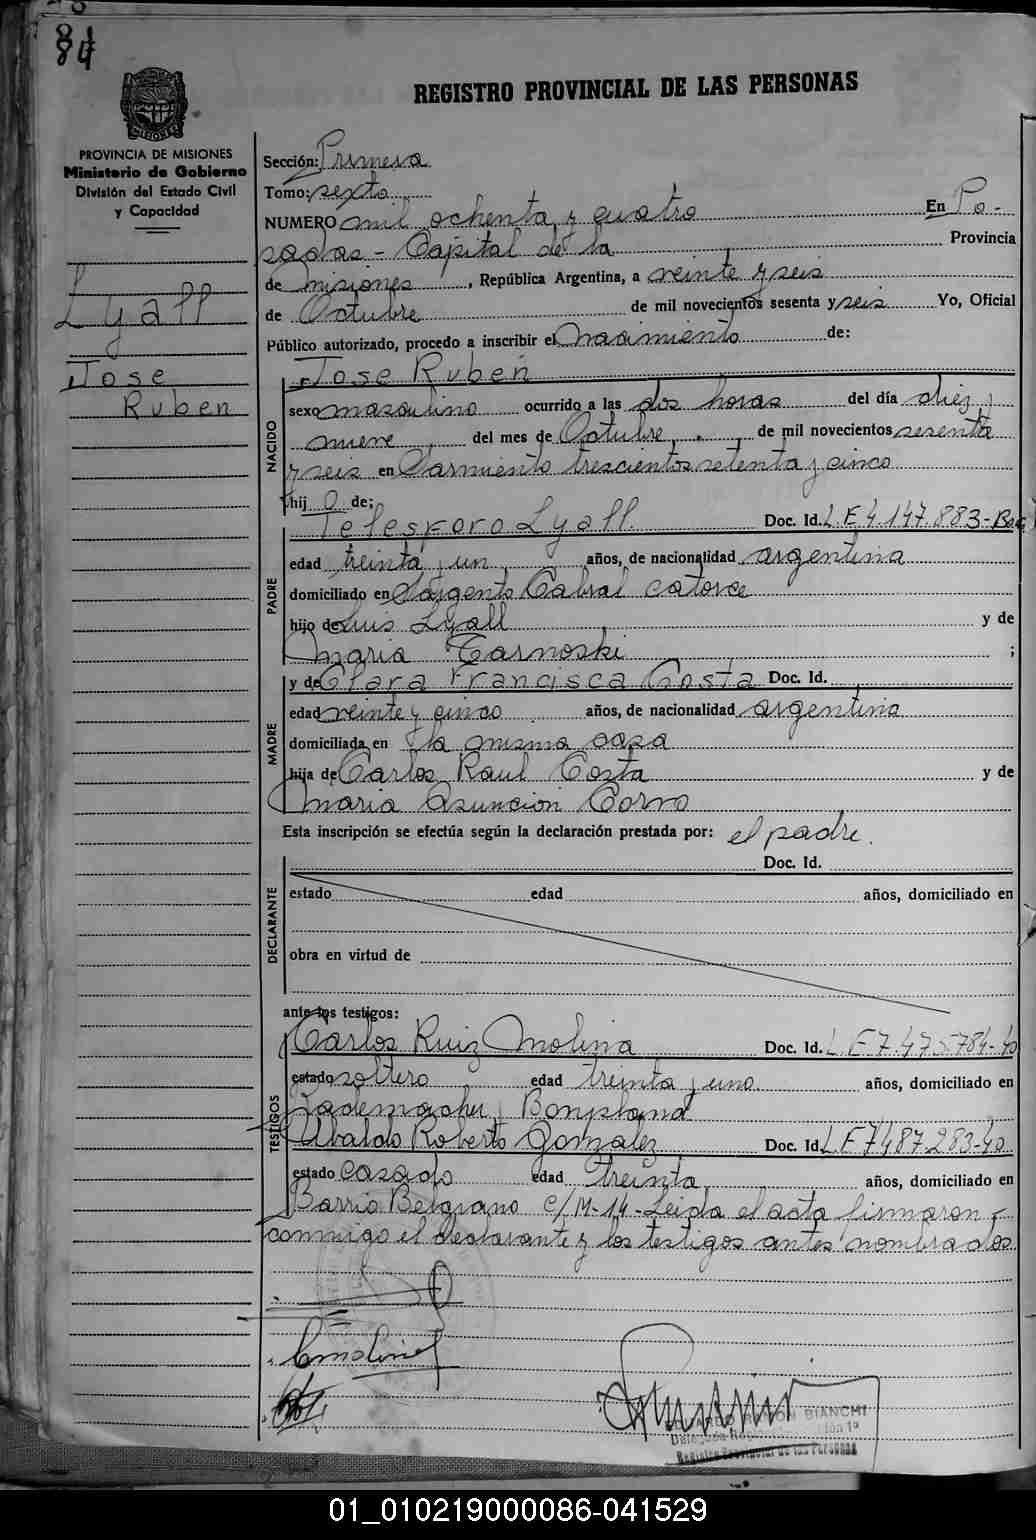 81
84
REGISTRO PROVINCIAL DE LAS PERSONAS
MISIONES
PROVINCIA DE MISIONES
Ministerio de Gobierno
División del Estado Civil
y Capacidad
Lyall
Jose
Ruben
Sección: Primera
Tomo: sexto
NUMERO mil ochenta y cuatro En Po-
sadas - Capital de la Provincia
de misiones, República Argentina, a veinte y seis
de Octubre de mil novecientos sesenta y seis Yo, Oficial
Público autorizado, procedo a inscribir el nacimiento de:
NACIDO
Jose Ruben
sexo masculino ocurrido a las dos horas del día diez y
nueve del mes de Octubre, de mil novecientos sesenta
y seis en Sarmiento trescientos setenta y cinco
hij o de;
PADRE
Telesforo Lyall Doc. Id. L.E 4.147.883-
edad treinta y un años, de nacionalidad argentina
domiciliado en Sargento Cabral catorce
hijo de Luis Lyall y de
Maria Tarnoski ;
MADRE
y de Clara Francisca Costa Doc. Id.
edad veinte y cinco años, de nacionalidad argentina
domiciliada en la misma casa
hija de Carlos Raul Costa y de
Maria Asuncion Corvo
Esta inscripción se efectúa según la declaración prestada por: el padre.
DECLARANTE
Doc. Id.
estado edad años, domiciliado en
obra en virtud de
ante los testigos:
TESTIGOS
Carlos Ruiz Molina Doc. Id. L E 7.475.784-40
estado soltero edad treinta y uno años, domiciliado en
Rademacher y Bonpland
Ubaldo Roberto Gonzalez Doc. Id. L.E 7487.283-40
estado casado edad treinta años, domiciliado en
Barrio Belgrano C/M-14 - Leida el acta firmaron
conmigo el declarante y los testigos antes nombrados
BIANCHI
Registro Provincial de las Personas
01_010219000086-041529